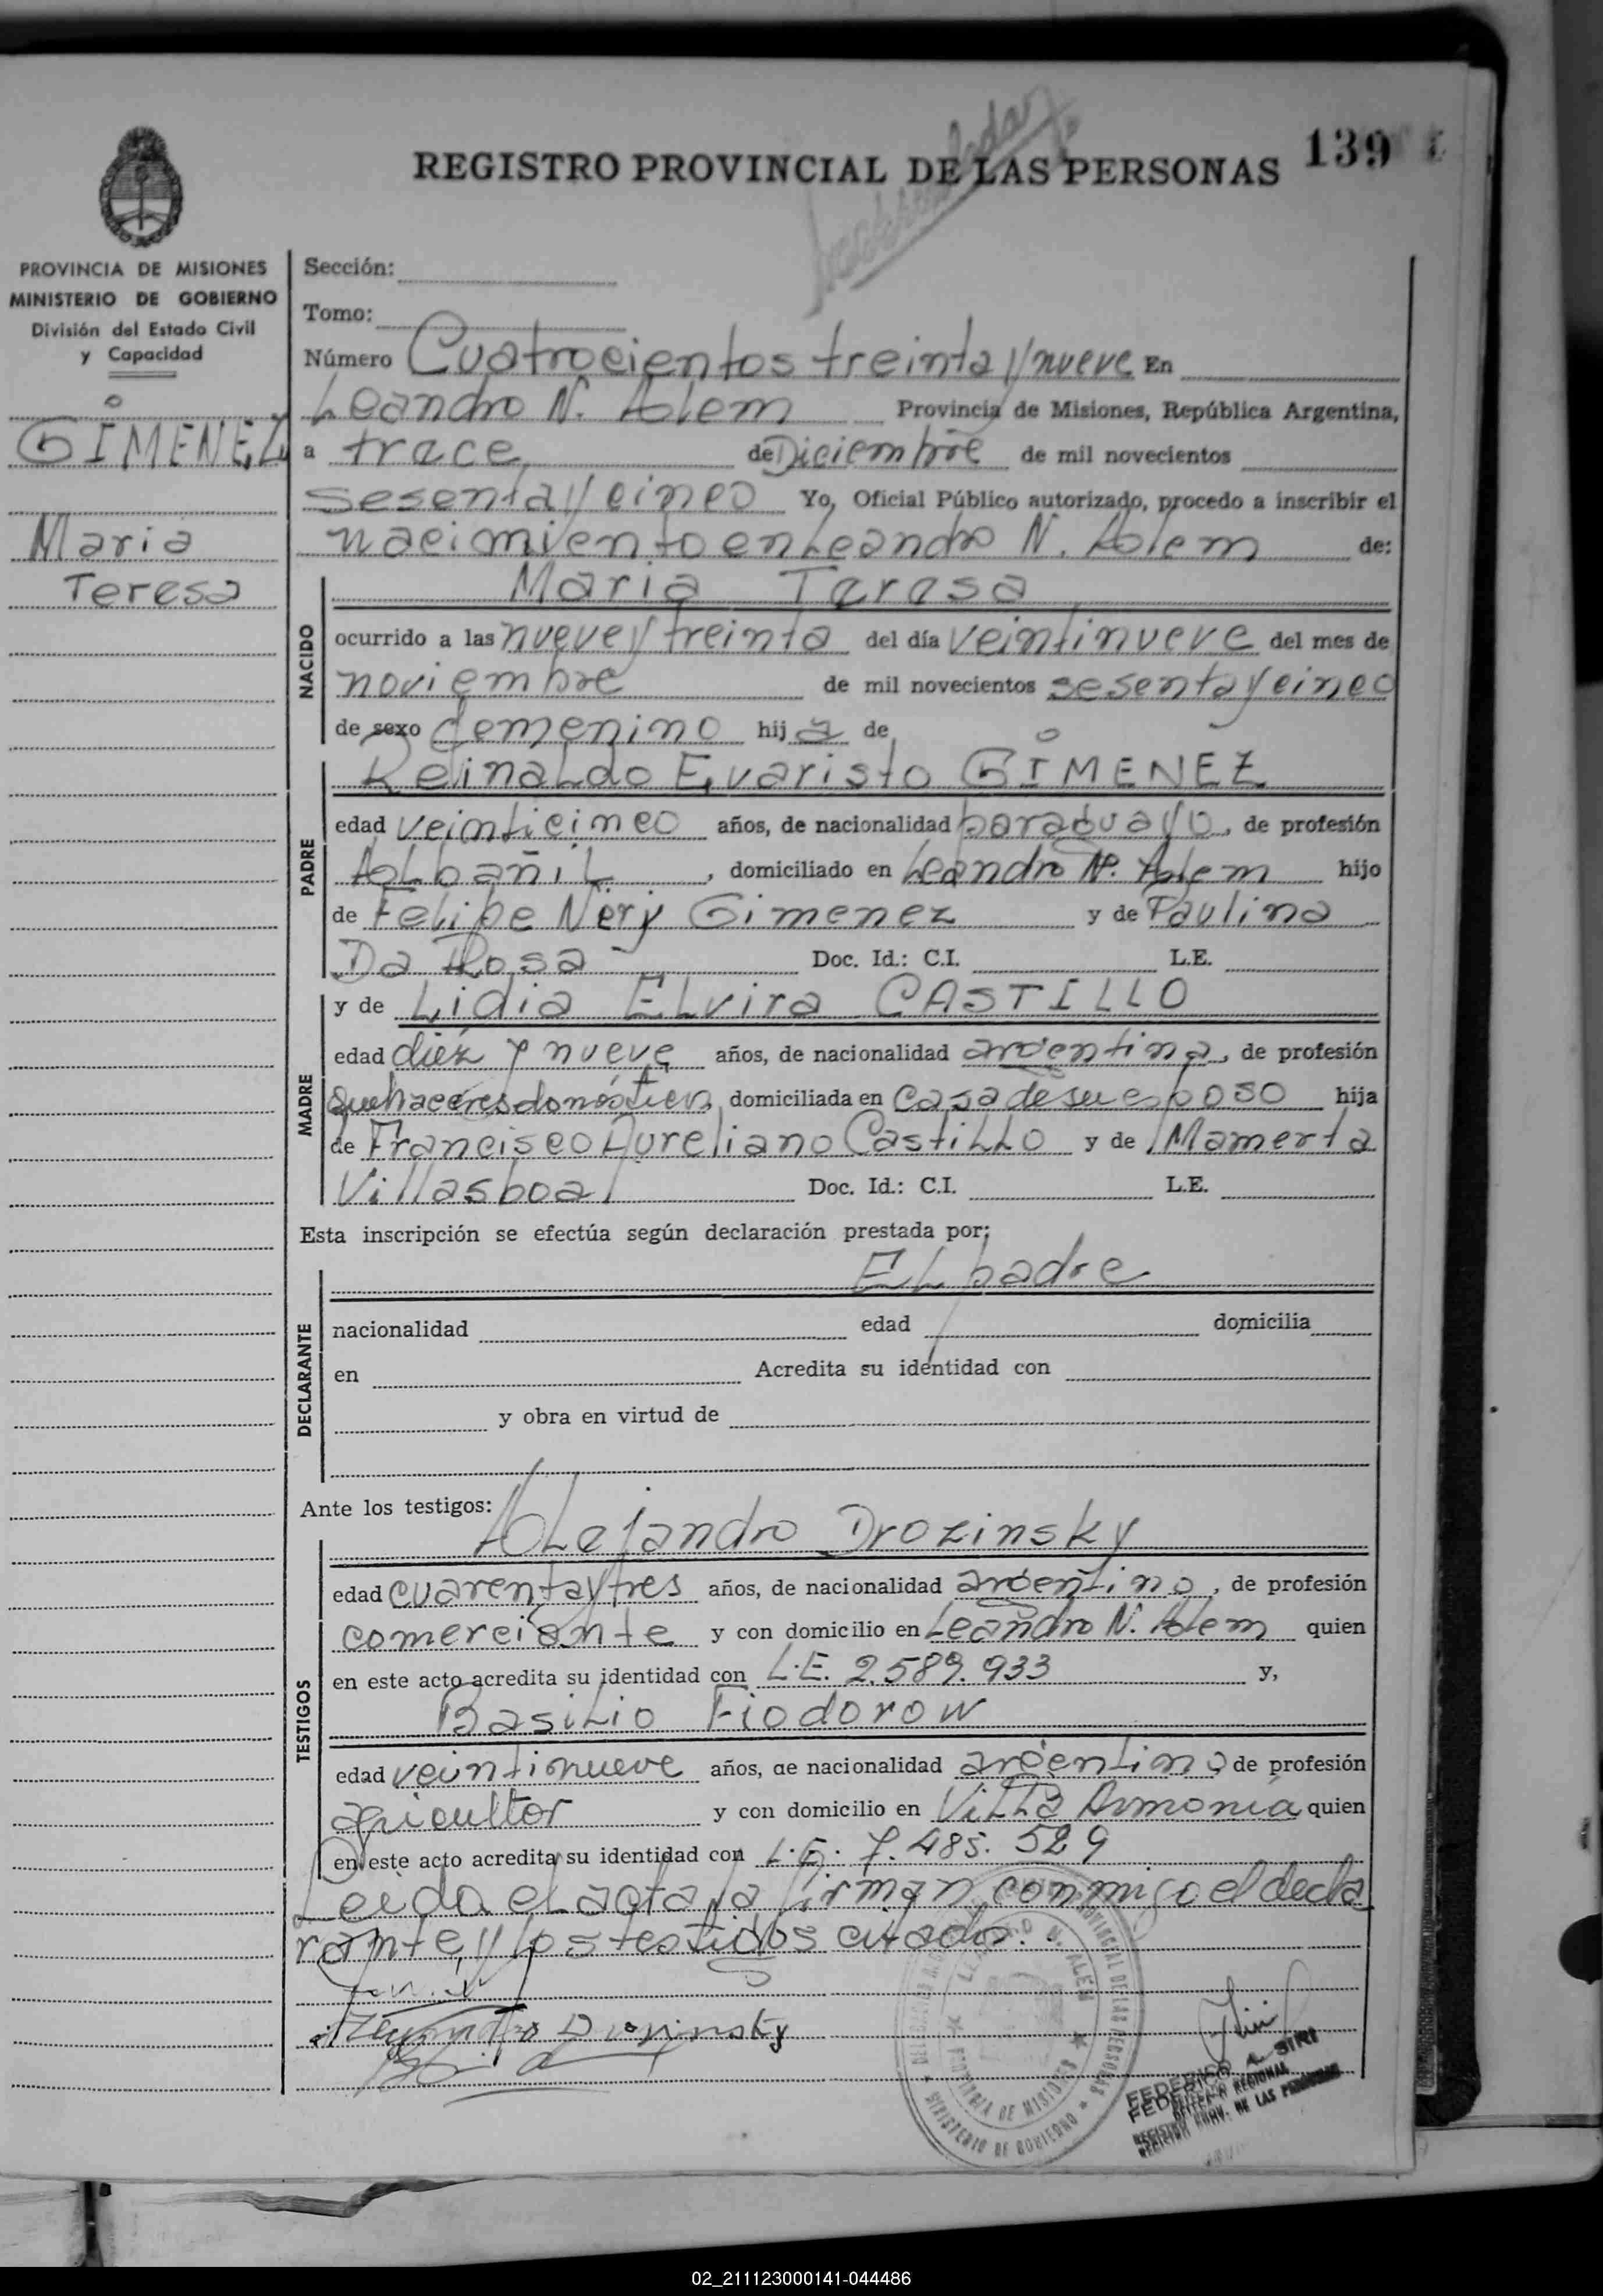 139
REGISTRO PROVINCIAL DE LAS PERSONAS
PROVINCIA DE MISIONES
MINISTERIO DE GOBIERNO
División del Estado Civil
y Capacidad
GIMENEZ
Maria
Teresa
Sección:
Tomo:
Número Cuatrocientos treinta y nueve En
Leandro N. Alem Provincia de Misiones, República Argentina,
a trece de Diciembre de mil novecientos
sesenta y cinco Yo, Oficial Público autorizado, procedo a inscribir el
nacimiento en Leandro N. Alem de:
Maria Teresa
NACIDO
ocurrido a las nueve y treinta del día veintinueve del mes de
noviembre de mil novecientos sesenta y cinco
de sexo femenino hij a de
Reinaldo Evaristo GIMENEZ
PADRE
edad veinticinco años, de nacionalidad paraguayo, de profesión
Albañil, domiciliado en Leandro N. Alem hijo
de Felipe Nery Gimenez y de Paulina
Da Rosa Doc. Id.: C.I. L.E.
y de Lidia Elvira CASTILLO
MADRE
edad diez y nueve años, de nacionalidad argentina, de profesión
quehaceres domésticos, domiciliada en casa de su esposo hija
de Francisco Aureliano Castillo y de Mamerta
Villasboa Doc. Id.: C.I. L.E.
Esta inscripción se efectúa según declaración prestada por:
El padre
DECLARANTE
nacionalidad edad domicilia
en Acredita su identidad con
y obra en virtud de
Ante los testigos:
Alejandro Drozinsky
TESTIGOS
edad cuarenta y tres años, de nacionalidad argentino, de profesión
comerciante y con domicilio en Leandro N. Alem quien
en este acto acredita su identidad con L.E. 2.589.933 y,
Basilio Fiodorow
edad veintinueve años, de nacionalidad argentino de profesión
agricultor y con domicilio en Villa Armonía quien
en este acto acredita su identidad con L.E. 7.485.529
Leida el acta la firman conmigo el decla
rante, y los testigos citados.
Drozinsky
LEANDRO N. ALEM
PROVINCIA DE MISIONES
MINISTERIO DE GOBIERNO
PROVINCIAL DE LAS PERSONAS
FEDERICO A. SIRI
02_211123000141-044486